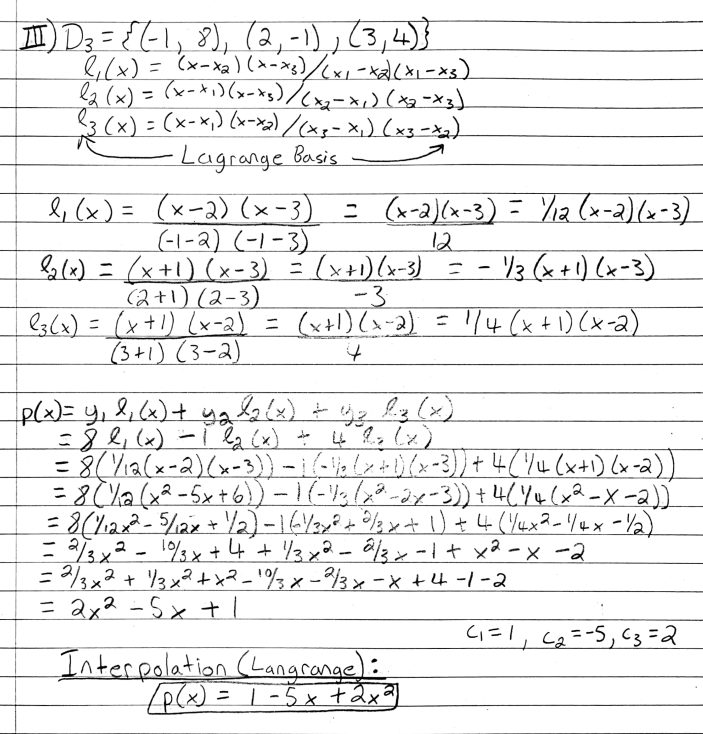 III) D₃ = {(-1, 8), (2, -1), (3, 4)}
l₁(x) = (x-x₂)(x-x₃)/(x₁-x₂)(x₁-x₃)
l₂(x) = (x-x₁)(x-x₃)/(x₂-x₁)(x₂-x₃)
l₃(x) = (x-x₁)(x-x₂)/(x₃-x₁)(x₃-x₂)
Lagrange Basis
l₁(x) = (x-2)(x-3)/(-1-2)(-1-3) = (x-2)(x-3)/12 = 1/12 (x-2)(x-3)
l₂(x) = (x+1)(x-3)/(2+1)(2-3) = (x+1)(x-3)/-3 = -1/3 (x+1)(x-3)
l₃(x) = (x+1)(x-2)/(3+1)(3-2) = (x+1)(x-2)/4 = 1/4 (x+1)(x-2)
p(x) = y₁ l₁(x) + y₂ l₂(x) + y₃ l₃(x)
= 8 l₁(x) - 1 l₂(x) + 4 l₃(x)
= 8(1/12(x-2)(x-3)) - 1(-1/3(x+1)(x-3)) + 4(1/4(x+1)(x-2))
= 8(1/12(x²-5x+6)) - 1(-1/3(x²-2x-3)) + 4(1/4(x²-x-2))
= 8(1/12x² - 5/12x + 1/2) - 1(-1/3x² + 2/3x + 1) + 4(1/4x² - 1/4x - 1/2)
= 2/3x² - 10/3x + 4 + 1/3x² - 2/3x - 1 + x² - x - 2
= 2/3x² + 1/3x² + x² - 10/3x - 2/3x - x + 4 - 1 - 2
= 2x² - 5x + 1
c₁=1, c₂=-5, c₃=2
Interpolation (Langrange):
p(x) = 1 - 5x + 2x²